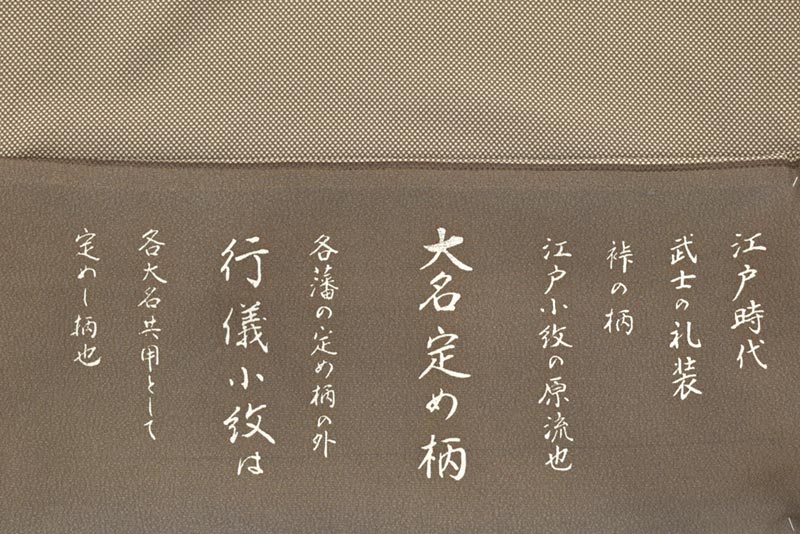 江戸時代
武士の礼装
裃の柄
江戸小紋の原流也
大名定め柄
各藩の定め柄の外
行儀小紋は
各大名共用として
定めし柄也